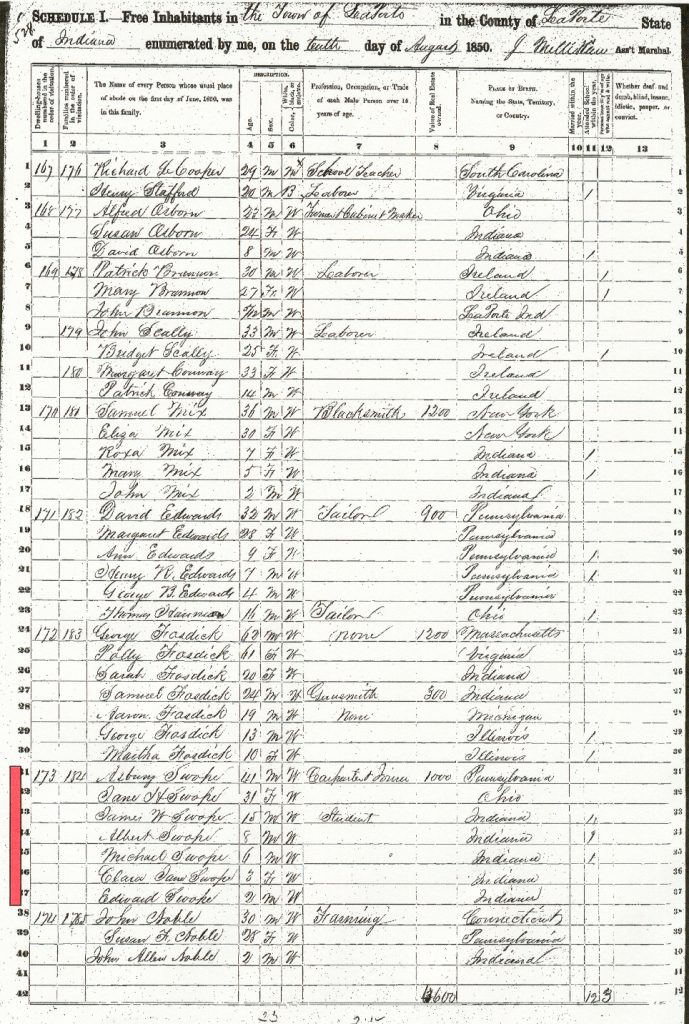 SCHEDULE I. Free Inhabitants in the Town of LaPorte in the County of LaPorte State
of Indiana enumerated by me, on the tenth day of August 1850. Ass't Marshal.
DESCRIPTION.
Dwelling-houses numbered in the order of visitation. Families numbered in the order of visitation. The Name of every Person whose usual place of abode on the first day of June, 1850, was in this family. Age. Sex. Color, White, black, or mulatto. Profession, Occupation, or Trade of each Male Person over 15 years of age. Value of Real Estate owned. PLACE OF BIRTH. Naming the State, Territory, or Country. Married within the year. Attended School within the year. Whether deaf and dumb, blind, insane, idiotic, pauper, or convict.
1 2 3 4 5 6 7 8 9 10 11 12 13
1 167 176 Richard Cooper 29 M School Teacher South Carolina 1
2 Henry Stafford 20 M B Laborer Virginia 1 2
3 168 177 Alfred Osborn 23 M W Cabinet Maker Ohio 3
4 Susan Osborn 24 F W Indiana 4
5 David Osborn 8 M W Indiana 1 5
6 169 178 Patrick Brannon 30 M W Laborer Ireland 1 6
7 Mary Brannon 27 F W Ireland 1 7
8 John Brannon M W LaPorte Ind 8
9 179 John Scally 33 M W Laborer Ireland 9
10 Bridget Scally 25 F W Ireland 1 10
11 180 Margaret Conway 33 F W Ireland 11
12 Patrick Conway 14 M W Ireland 12
13 170 181 Samuel Mix 36 M W Blacksmith 1200 New York 13
14 Eliza Mix 30 F W New York 14
15 Roxa Mix 7 F W Indiana 1 15
16 Mary Mix 5 F W Indiana 1 16
17 John Mix 2 M W Indiana 17
18 171 182 David Edwards 32 M W Tailor 900 Pennsylvania 18
19 Margaret Edwards 28 F W Pennsylvania 19
20 Ann Edwards 9 F W Pennsylvania 1 20
21 Henry R. Edwards 7 M W Pennsylvania 1 21
22 George B. Edwards 4 M W Pennsylvania 22
23 Thomas 16 M W Tailor Ohio 1 23
24 172 183 George Fosdick 62 M W None 1200 Massachusetts 24
25 Polly Fosdick 61 F W Virginia 25
26 Sarah Fosdick 20 F W Indiana 26
27 Samuel Fosdick 24 M W Gunsmith 300 Indiana 27
28 Aaron Fosdick 19 M W None Michigan 28
29 George Fosdick 13 M W Illinois 1 29
30 Martha Fosdick 10 F W Illinois 1 30
31 173 184 Asbury Swope 41 M W Carpenter & Joiner 1000 Pennsylvania 31
32 Jane H Swope 31 F W Ohio 32
33 James W Swope 15 M W Student Indiana 1 33
34 Albert Swope 8 M W Indiana 1 34
35 Michael Swope 6 M W Indiana 1 35
36 Clara Jane Swope 3 F W Indiana 36
37 Edward Swope 2 M W Indiana 37
38 174 185 John Noble 30 M W Farming Connecticut 38
39 Susan F. Noble 28 F W Pennsylvania 39
40 John Allen Noble 2 M W Indiana 40
41
42 600 12 3 42
23